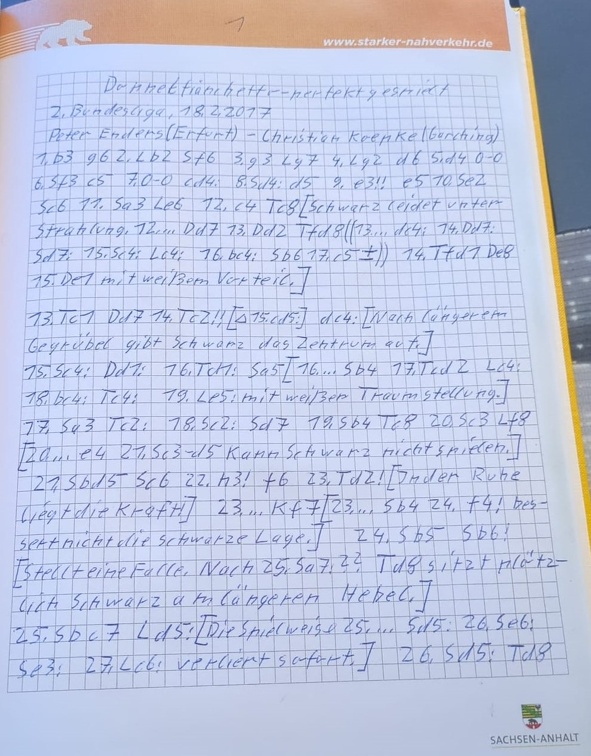 1
www.starker-nahverkehr.de
Doppelfianchetto - perfekt gespielt
2. Bundesliga, 18.2.2017
Peter Enders (Erfurt) - Christian Koepke (Garching)
1. b3 g6 2. Lb2 Sf6 3. g3 Lg7 4. Lg2 d6 5. d4 0-0
6. Sf3 c5 7. 0-0 cd4: 8. Sd4: d5 9. e3!! e5 10. Se2
Sc6 11. Sa3 Le6 12. c4 Tc8 [Schwarz leidet unter
Strahlung. 12... Dd7 13. Dd2 Tfd8 ((13... dc4: 14. Dd7:
Sd7: 15. Sc4: Lc4: 16. bc4: Sb6 17. c5 ±)) 14. Tfd1 De8
15. De1 mit weißem Vorteil.]
13. Tc1 Dd7 14. Tc2!! [Δ 15. cd5:] dc4: [Nach längerem
Gegrübel gibt Schwarz das Zentrum auf.]
15. Sc4: Dd1: 16. Td1: Sa5 [16... Sb4 17. Tcd2 Lc4:
18. bc4: Tc4: 19. Le5: mit weißer Traumstellung.]
17. Sa3 Tc2: 18. Sc2: Sd7 19. Sb4 Tc8 20. Sc3 Lf8
[20... e4 21. Sc3-d5 kann Schwarz nicht spielen.]
21. Sbd5 Sc6 22. h3! f6 23. Td2! [In der Ruhe
liegt die Kraft!] 23... Kf7 [23... Sb4 24. f4! bes-
sert nicht die schwarze Lage.] 24. Sb5 Sb6!
[Stellt eine Falle. Nach 25. Sa7:?? Td8 sitzt plötz-
lich Schwarz am längeren Hebel.]
25. Sbc7 Ld5: [Die Spielweise 25.... Sd5: 26. Se6:
Se3: 27. Lc6: verliert sofort.] 26. Sd5: Td8
SACHSEN-ANHALT